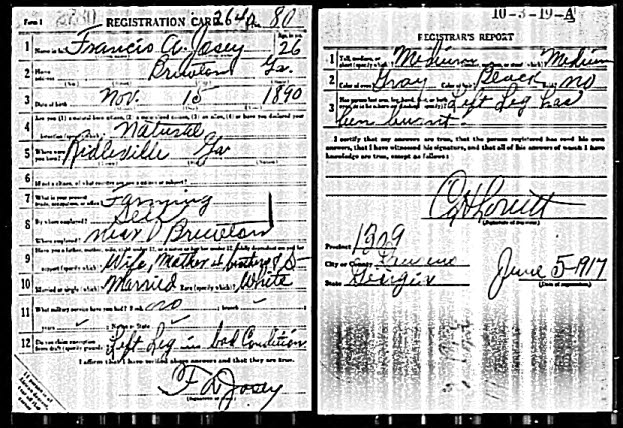 Form 1 REGISTRATION CARD 80
1 Name in full Francis A. Josey Age, in yrs. 26
2 Home address Brewton Ga.
3 Date of birth Nov. 15 1890
4 Are you (1) a natural born citizen, (2) a naturalized citizen, (3) an alien, (4) or have you declared your
intention (specify which)? Natural
5 Where were you born? Ridleville Ga
6 If not a citizen, of what country are you a citizen or subject?
7 What is your present trade, occupation, or office? Farming
8 By whom employed? Self
Where employed? near Brewton
9 Have you a father, mother, wife, child under 12, or a sister or brother under 12, solely dependent on you for
support (specify which)? Wife, Mother &
10 Married or single (which)? Married Race (specify which)? White
11 What military service have you had? Rank no branch
years Nation or State
12 Do you claim exemption from draft (specify grounds)? Left Leg in bad Condition
I affirm that I have verified above answers and that they are true.
F A Josey
(Signature or mark)
10-3-19-A
REGISTRAR'S REPORT
1 Tall, medium, or short (specify which)? Medium Slender, medium, or stout (which)? Medium
2 Color of eyes Gray Color of hair Black no
3 Has person lost arm, leg, hand, foot, or both Left Leg has
been burnt
I certify that my answers are true, that the person registered has read his own
answers, that I have witnessed his signature, and that all of his answers of which I have
knowledge are true, except as follows:
(Signature of registrar)
Precinct 1309
City or County
State Georgia June 5-1917
(Date of registration)